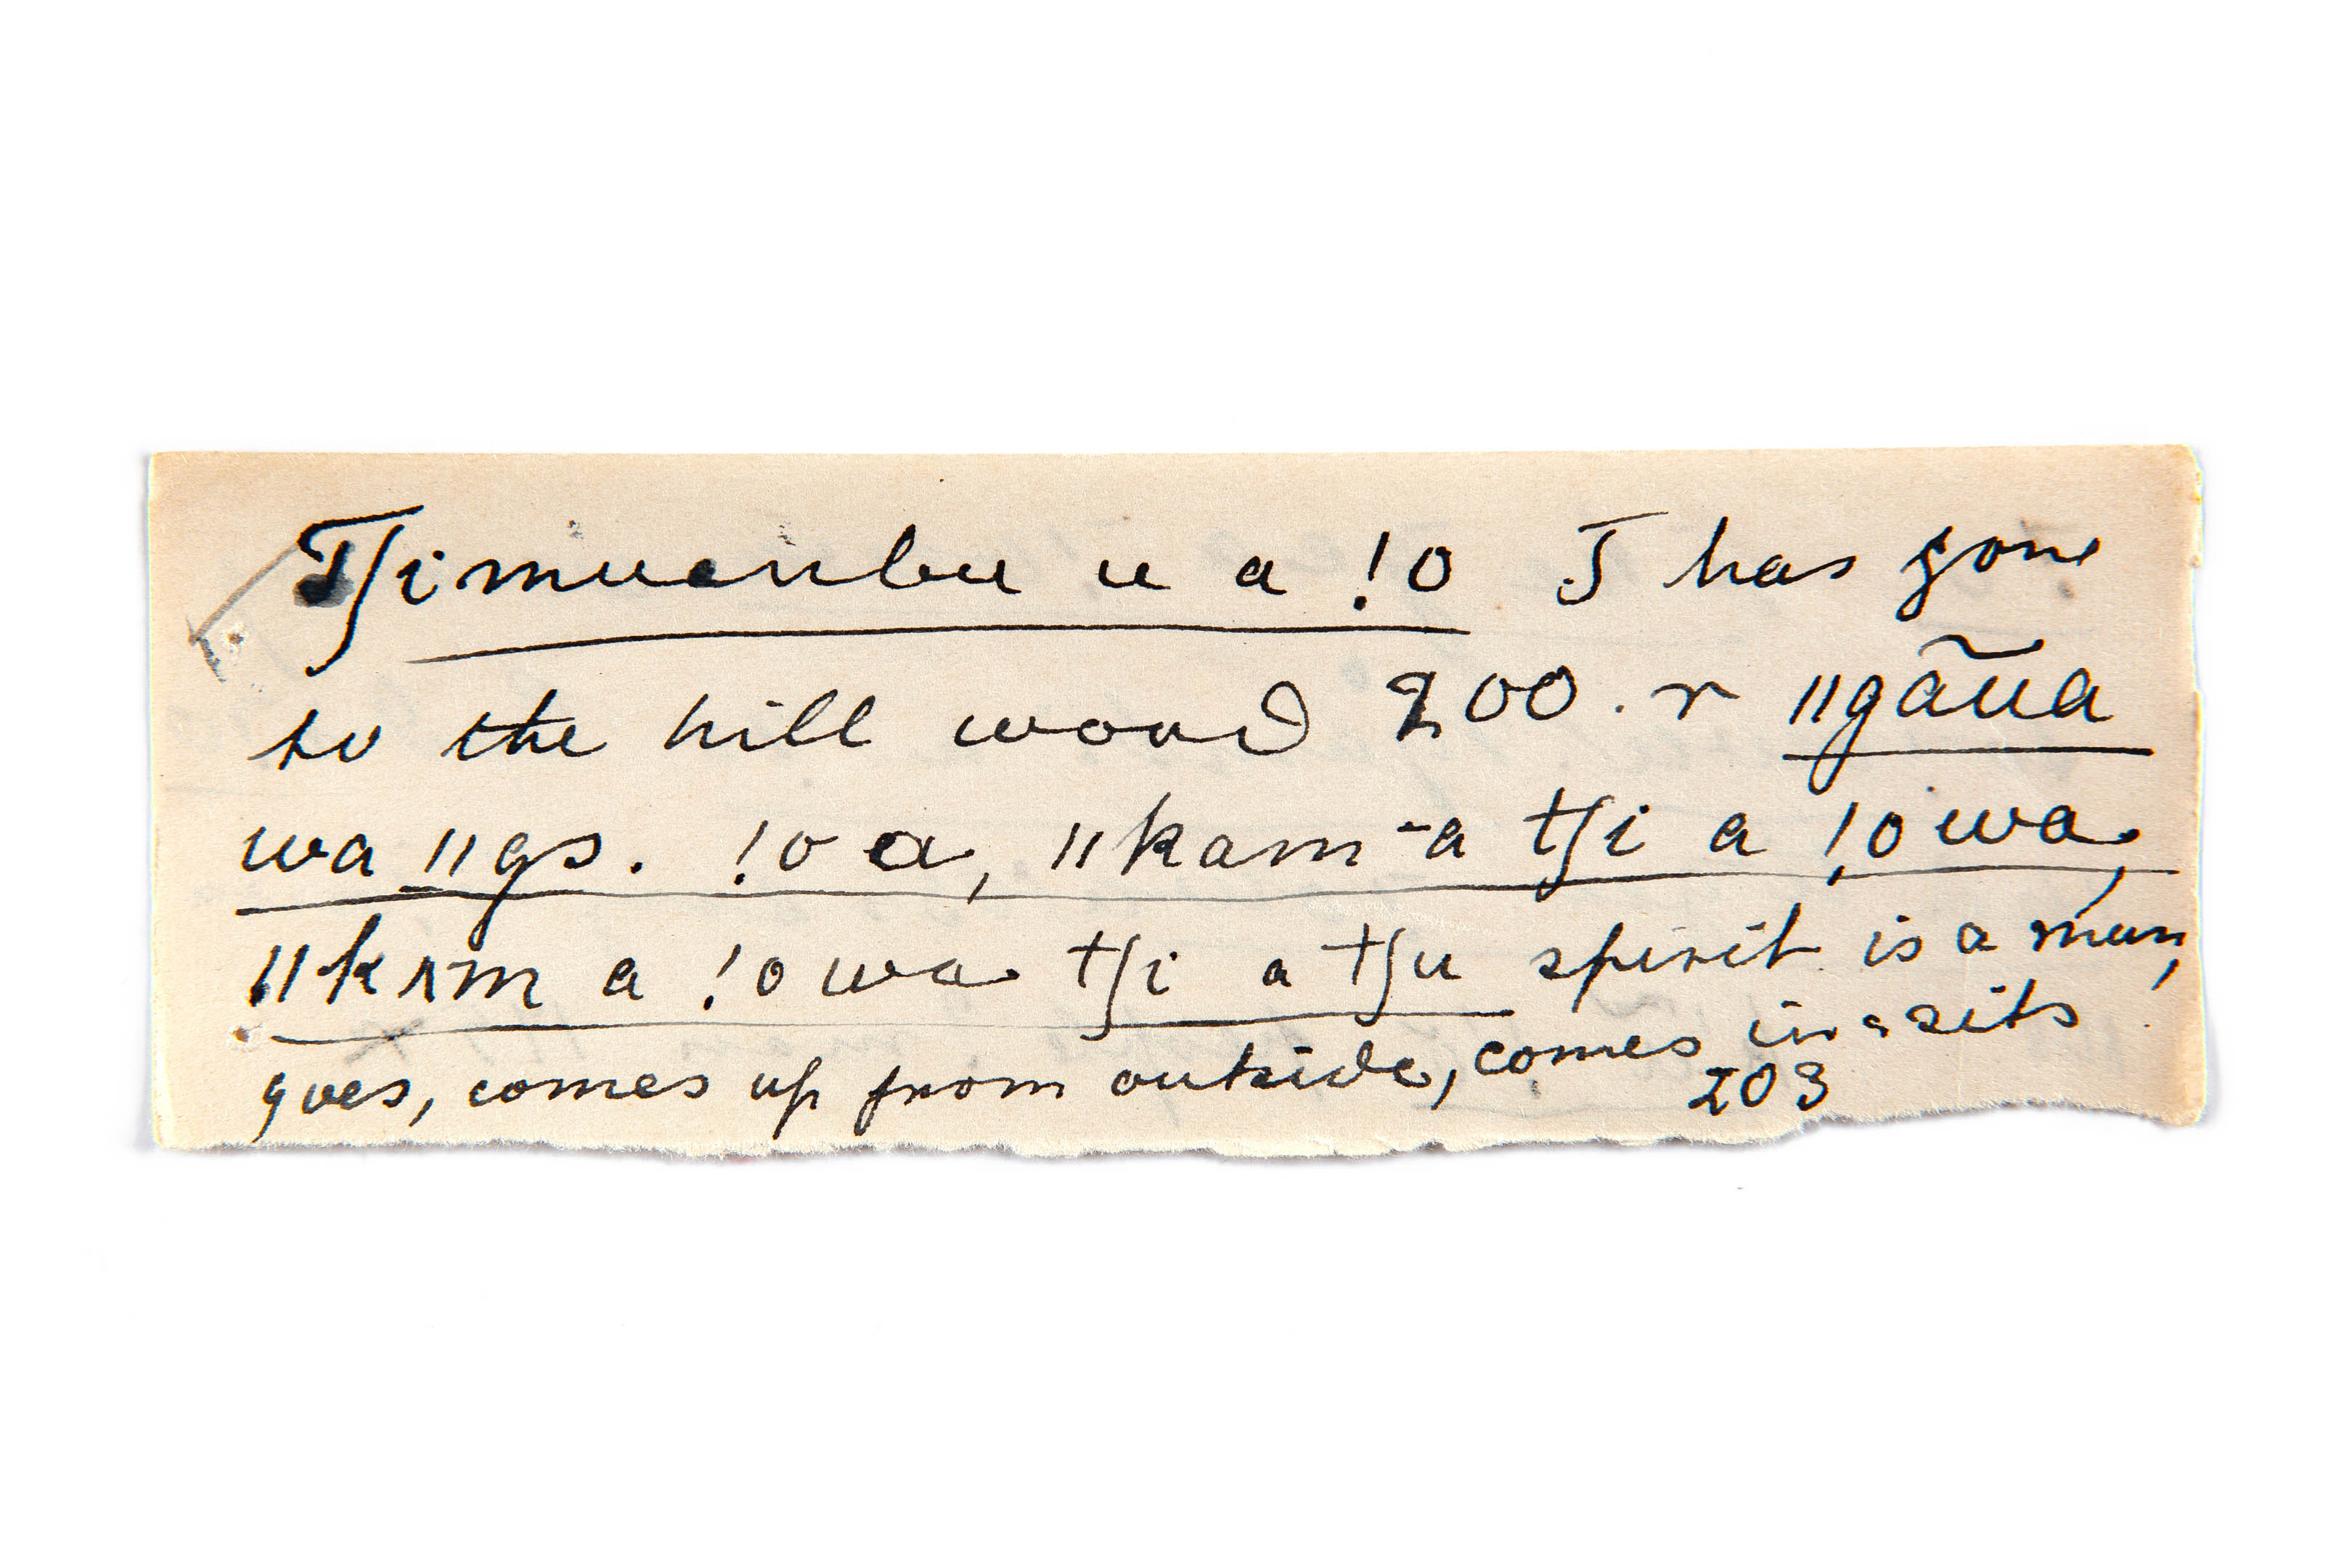 Tʃimuenbu u a !o J has gone
to the hill wood 200. r ǁgãua
wa ǁgs. !o a, ǁkam-a tʃi a !owa,
ǁkʌm a !owa tʃi a tʃu spirit is a man,
goes, comes up from outside, comes in a sits
203